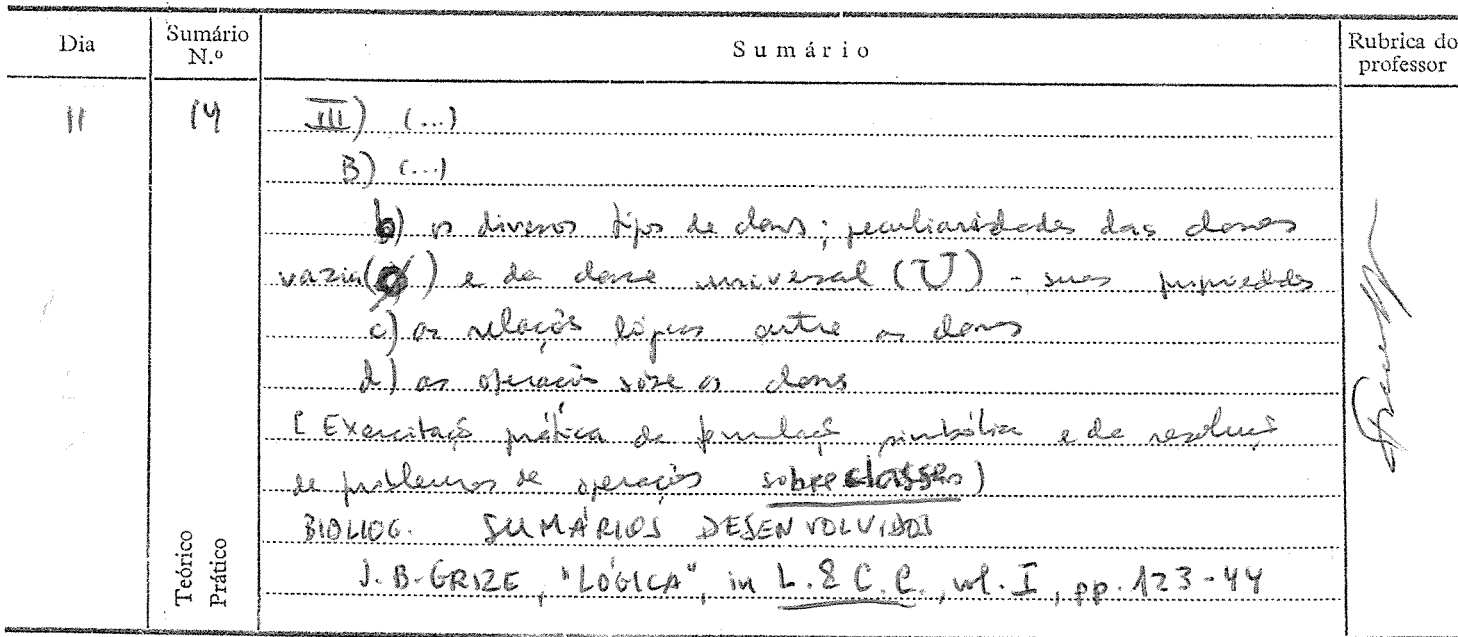 Dia Sumário N.º Sumário Rubrica do professor
11 14 III) (...)
B) (...)
b) os diversos tipos de classes; peculiaridades das classes
vazia (Ø) e da classe universal (U) - suas propriedades
c) as relações lógicas entre as classes
d) as operações sobre as classes
[Exercitação prática de formulação simbólica e de resolução
de problemas de operações sobre classes)
BIBLIOG. SUMÁRIOS DESENVOLVIDOS
J.B. GRIZE, "LÓGICA", in L. & C.C., vol. I, pp. 123-44
Teórico
Prático